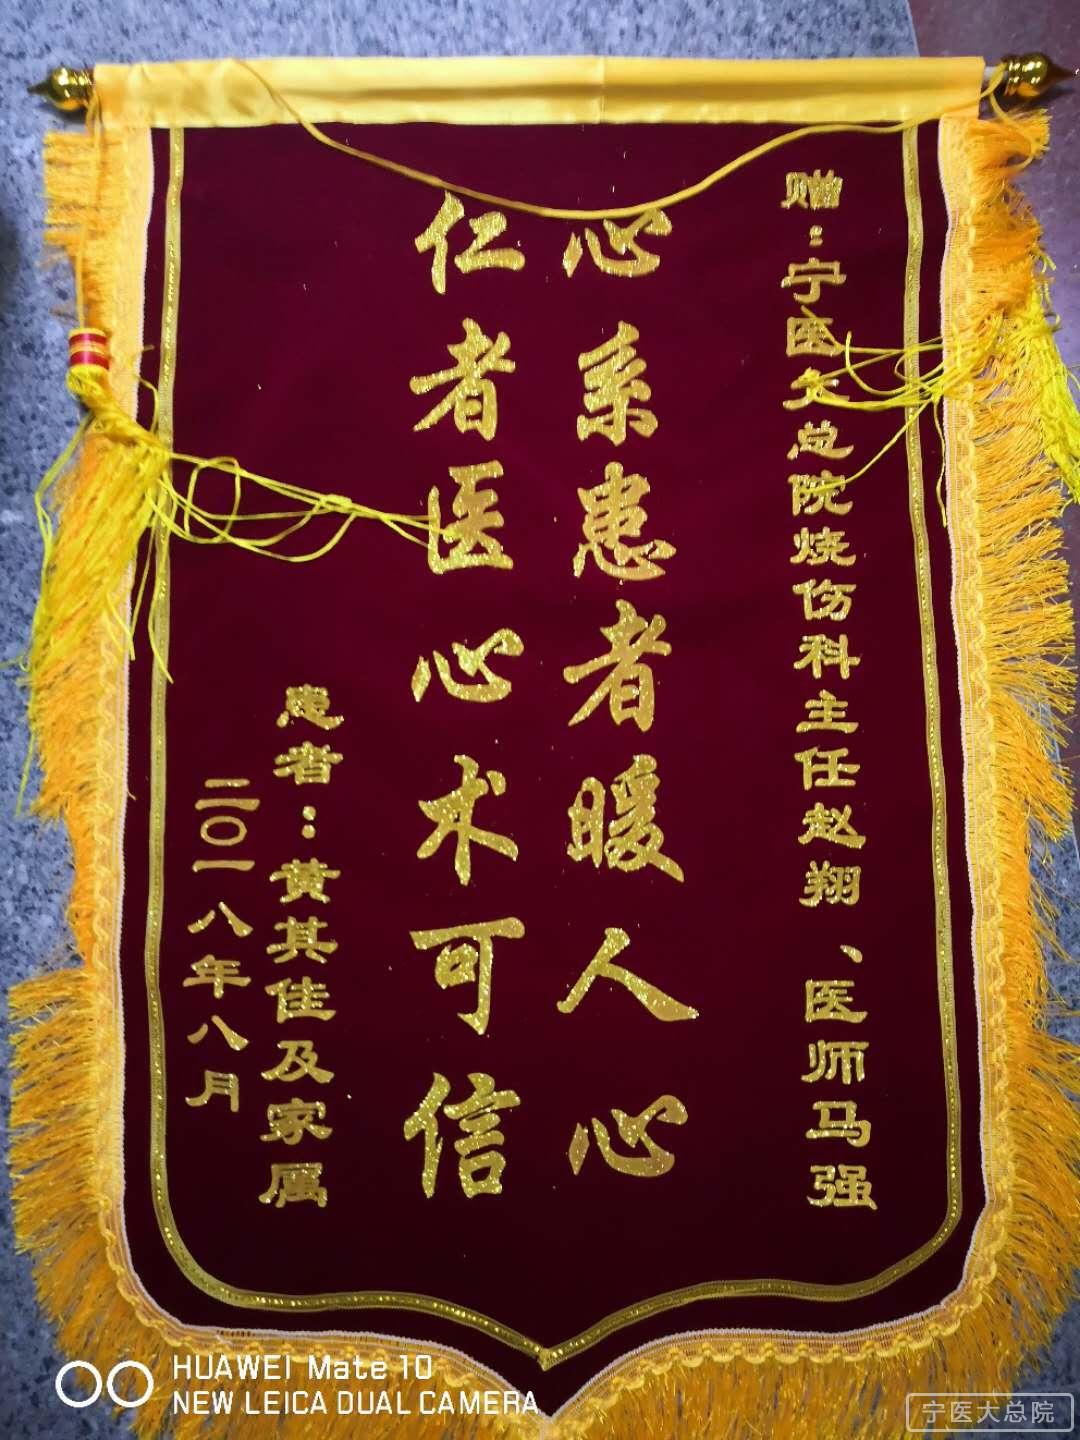 赠：宁医大总院烧伤科主任赵翔、医师马强
心系患者暖人心
仁者医心术可信
患者：黄其佳及家属
二〇一八年八月
HUAWEI Mate 10
NEW LEICA DUAL CAMERA
宁医大总院